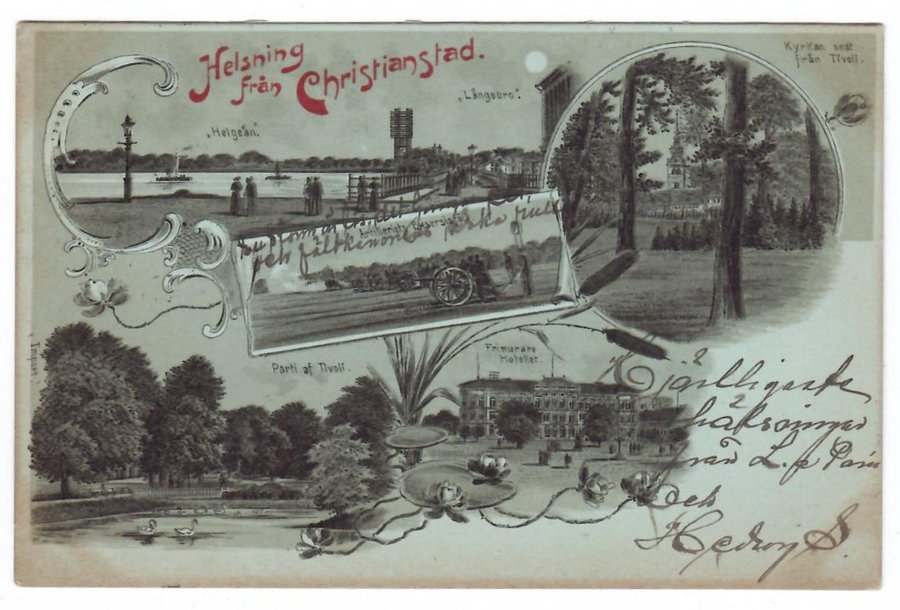 Helsning
från Christianstad.
Kyrkan sedt
från Tivoli.
„Långebro".
„Helgeån."
Artilleriets Exercisfält
och fältkanonens
Parti af Tivoli.
Frimurare
Hotellet.
Hjärtligaste
hälsningar
från L.
och
Hedwig S.